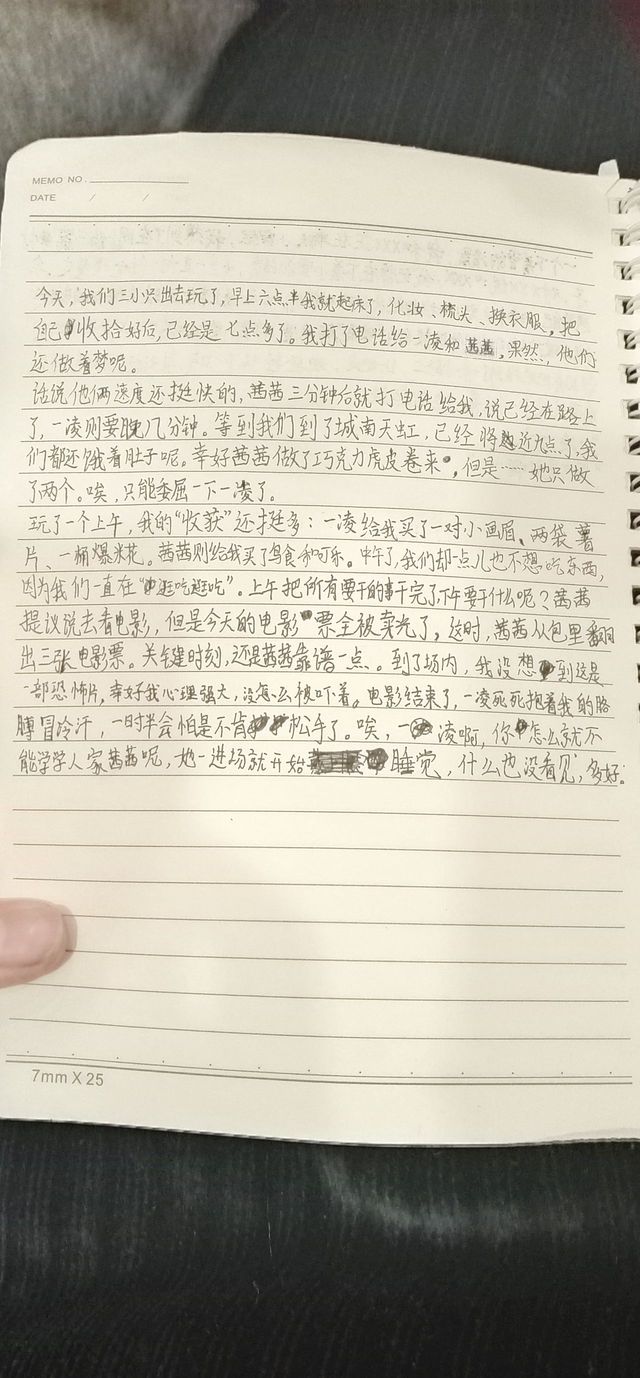 MEMO NO.
DATE / /
今天，我们三小只出去玩了，早上六点半我就起床了，化妆、梳头、换衣服，把
自己收拾好后，已经是七点多了。我打了电话给一凌和茜茜，果然，他们
还做着梦呢。
话说他俩速度还挺快的，茜茜三分钟后就打电话给我，说已经在路上
了，一凌则要晚几分钟。等到我们到了城南天虹，已经将近九点了，我
们都还饿着肚子呢。幸好茜茜做了巧克力虎皮卷来，但是……她只做
了两个。唉，只能委屈一下一凌了。
玩了一个上午，我的“收获”还挺多：一凌给我买了一对小画眉、两袋薯
片、一桶爆米花。茜茜则给我买了鸟食和可乐。中午了，我们却一点儿也不想吃东西，
因为我们一直在“逛吃逛吃”。上午把所有要干的事干完了下午要干什么呢？茜茜
提议说去看电影，但是今天的电影票全被卖光了，这时，茜茜从包里翻
出三张电影票。关键时刻，还是茜茜靠谱一点。到了场内，我没想到这是
一部恐怖片，幸好我心理强大，没怎么被吓着。电影结束了，一凌死死抱着我的胳
膊冒冷汗，一时半会怕是不肯松手了。唉，一凌啊，你怎么就不
能学学人家茜茜呢，她一进场就开始睡觉，什么也没看见，多好。
7mm X 25